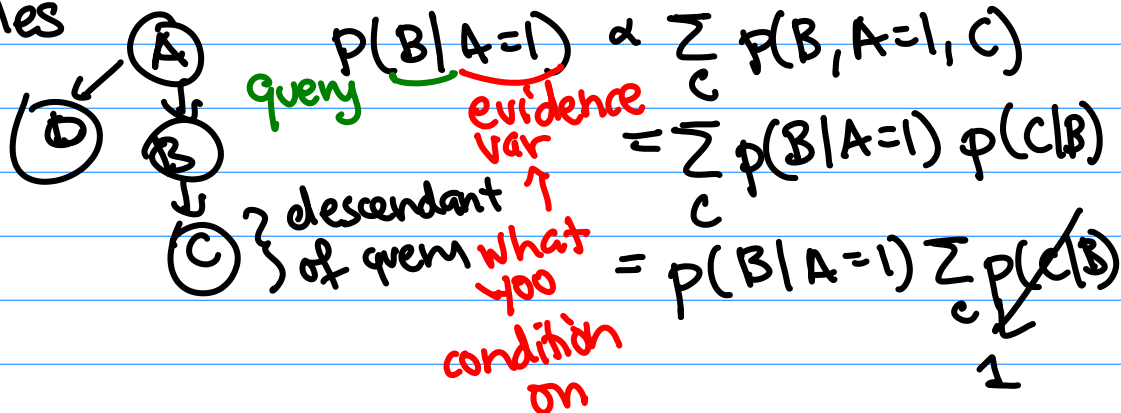 les
A
D
B
C
} descendant
of query
p(B|A=1) ∝ Σ_C p(B,A=1,C)
query
evidence
var
↑
what
you
condition
on
= Σ_C p(B|A=1) p(C|B)
= p(B|A=1) Σ_C p(C|B)
1